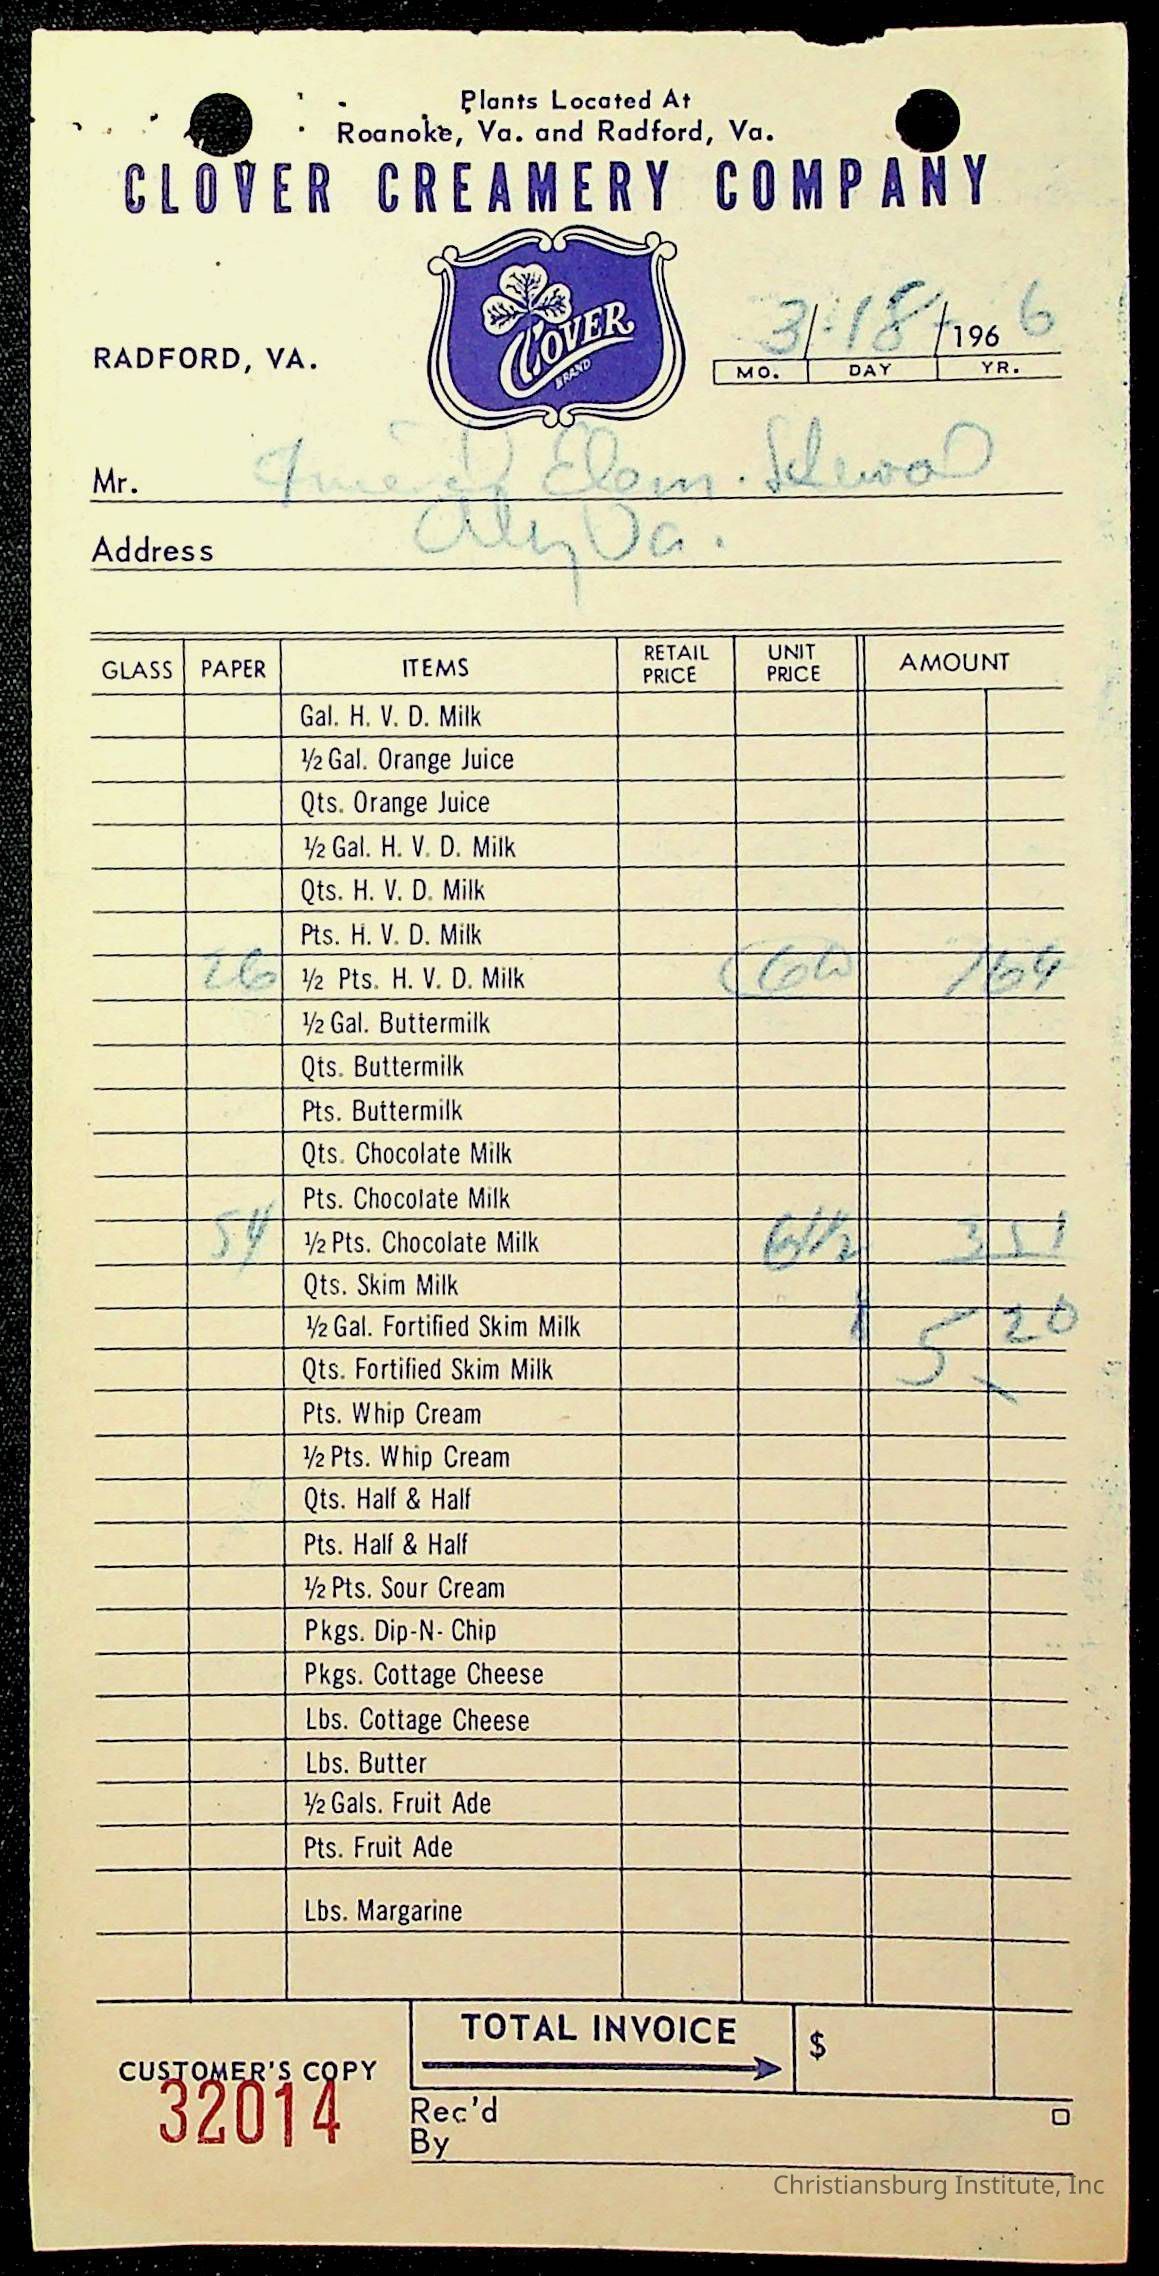 Plants Located At
Roanoke, Va. and Radford, Va.
CLOVER CREAMERY COMPANY
CLOVER
BRAND
RADFORD, VA.
3/18/1966
MO. DAY YR.
Mr. Elem. School
Address Va.
GLASS PAPER ITEMS RETAIL PRICE UNIT PRICE AMOUNT
Gal. H. V. D. Milk
½ Gal. Orange Juice
Qts. Orange Juice
½ Gal. H. V. D. Milk
Qts. H. V. D. Milk
Pts. H. V. D. Milk
26 ½ Pts. H. V. D. Milk 169
½ Gal. Buttermilk
Qts. Buttermilk
Pts. Buttermilk
Qts. Chocolate Milk
Pts. Chocolate Milk
54 ½ Pts. Chocolate Milk 6½ 351
Qts. Skim Milk
½ Gal. Fortified Skim Milk 5 20
Qts. Fortified Skim Milk
Pts. Whip Cream
½ Pts. Whip Cream
Qts. Half & Half
Pts. Half & Half
½ Pts. Sour Cream
Pkgs. Dip-N-Chip
Pkgs. Cottage Cheese
Lbs. Cottage Cheese
Lbs. Butter
½ Gals. Fruit Ade
Pts. Fruit Ade
Lbs. Margarine
TOTAL INVOICE $
CUSTOMER'S COPY
32014
Rec'd
By
Christiansburg Institute, Inc